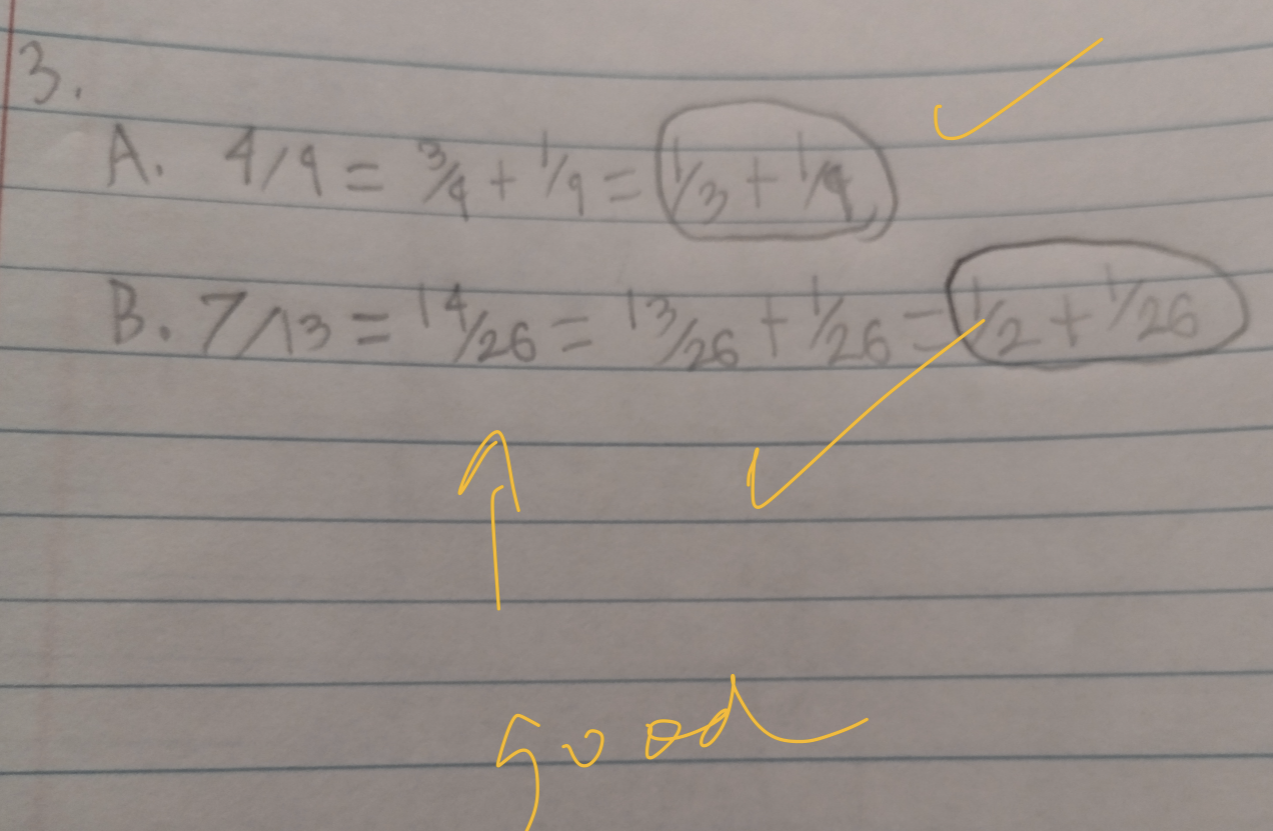 3.
A. 4/9 = 3/9 + 1/9 = 1/3 + 1/9
B. 7/13 = 14/26 = 13/26 + 1/26 = 1/2 + 1/26
good